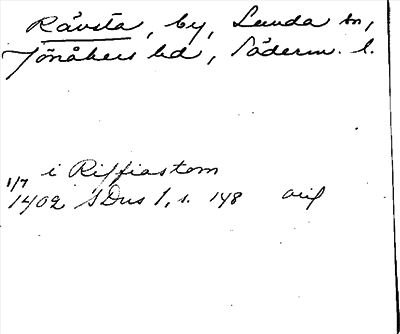 Råvsta, by, Lunda sn,
Jönåkers hd, Söderm. l.
i Riffiastom
1/7
1402 SDns 1, s. 148 orig